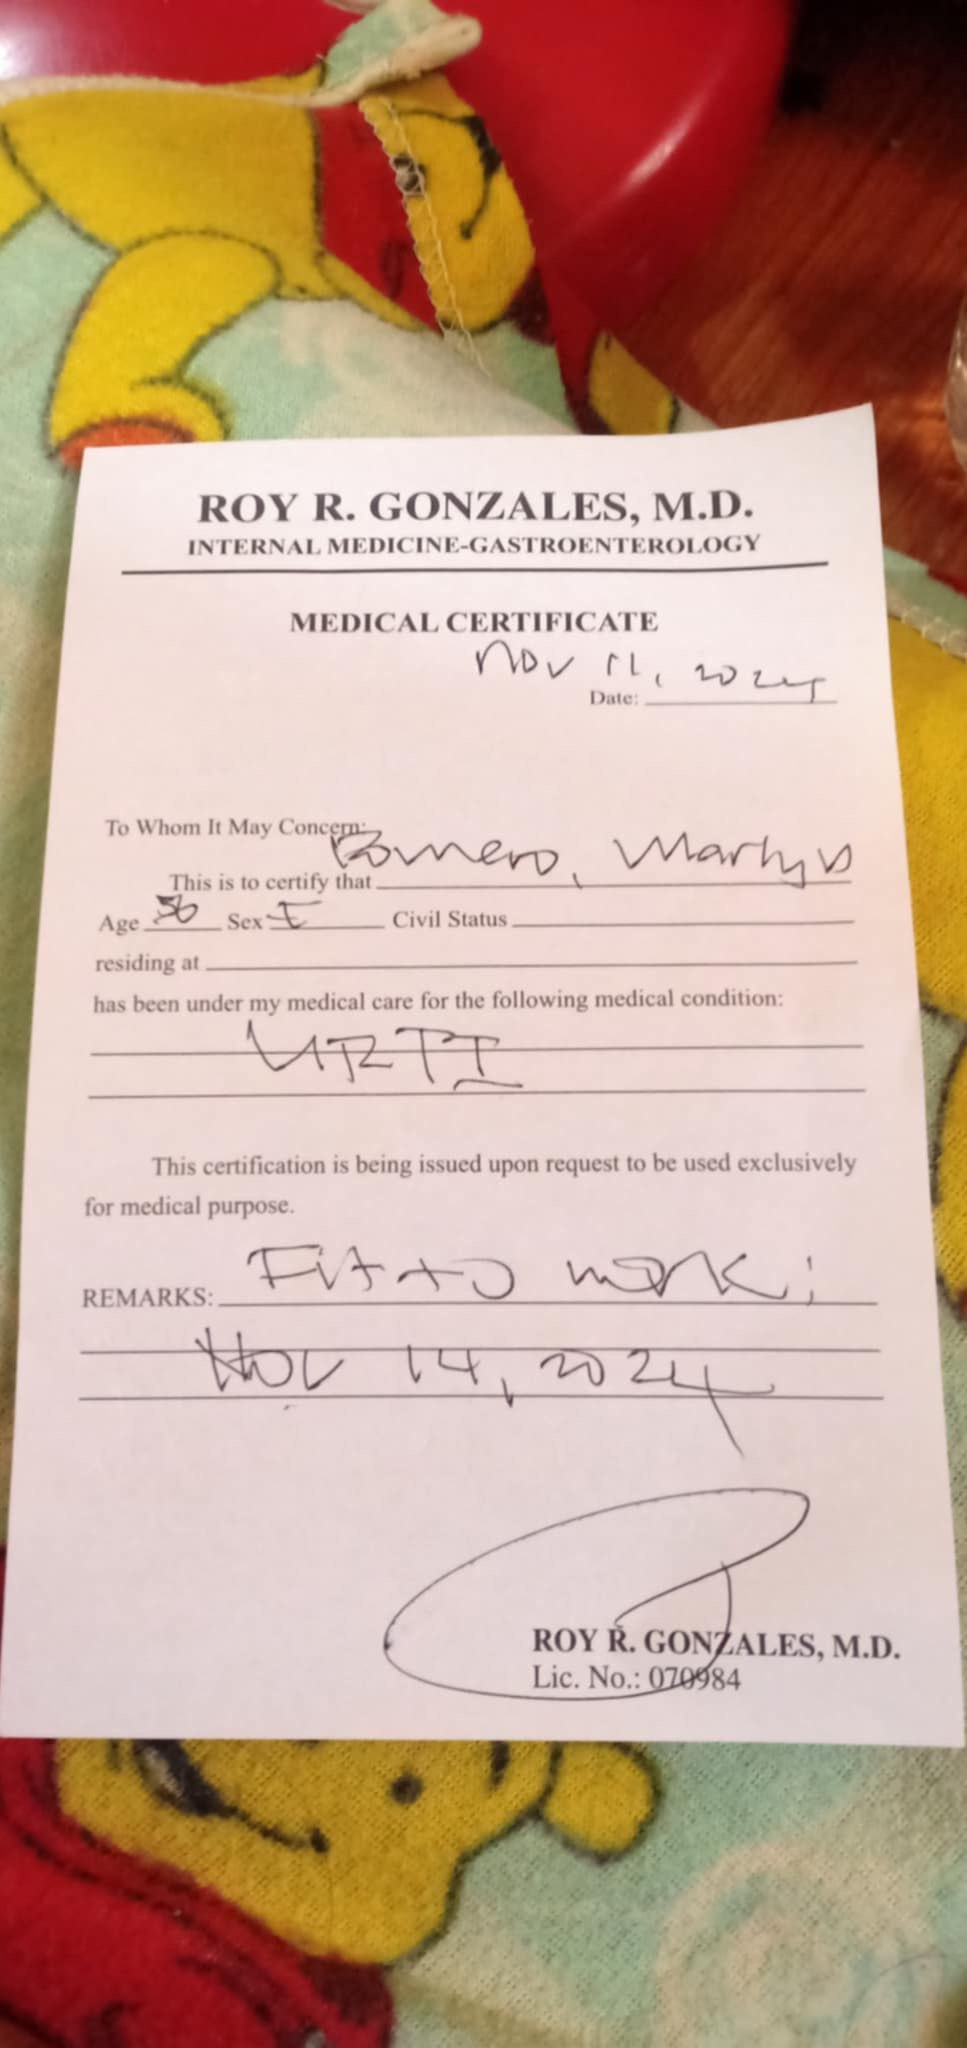 ROY R. GONZALES, M.D.
INTERNAL MEDICINE-GASTROENTEROLOGY
MEDICAL CERTIFICATE
Nov 11, 2024
Date:
To Whom It May Concern:
This is to certify that Romero,
Age Sex F Civil Status
residing at
has been under my medical care for the following medical condition:
URTI
This certification is being issued upon request to be used exclusively
for medical purpose.
REMARKS: Fit to work;
Nov 14, 2024
ROY R. GONZALES, M.D.
Lic. No.: 070984